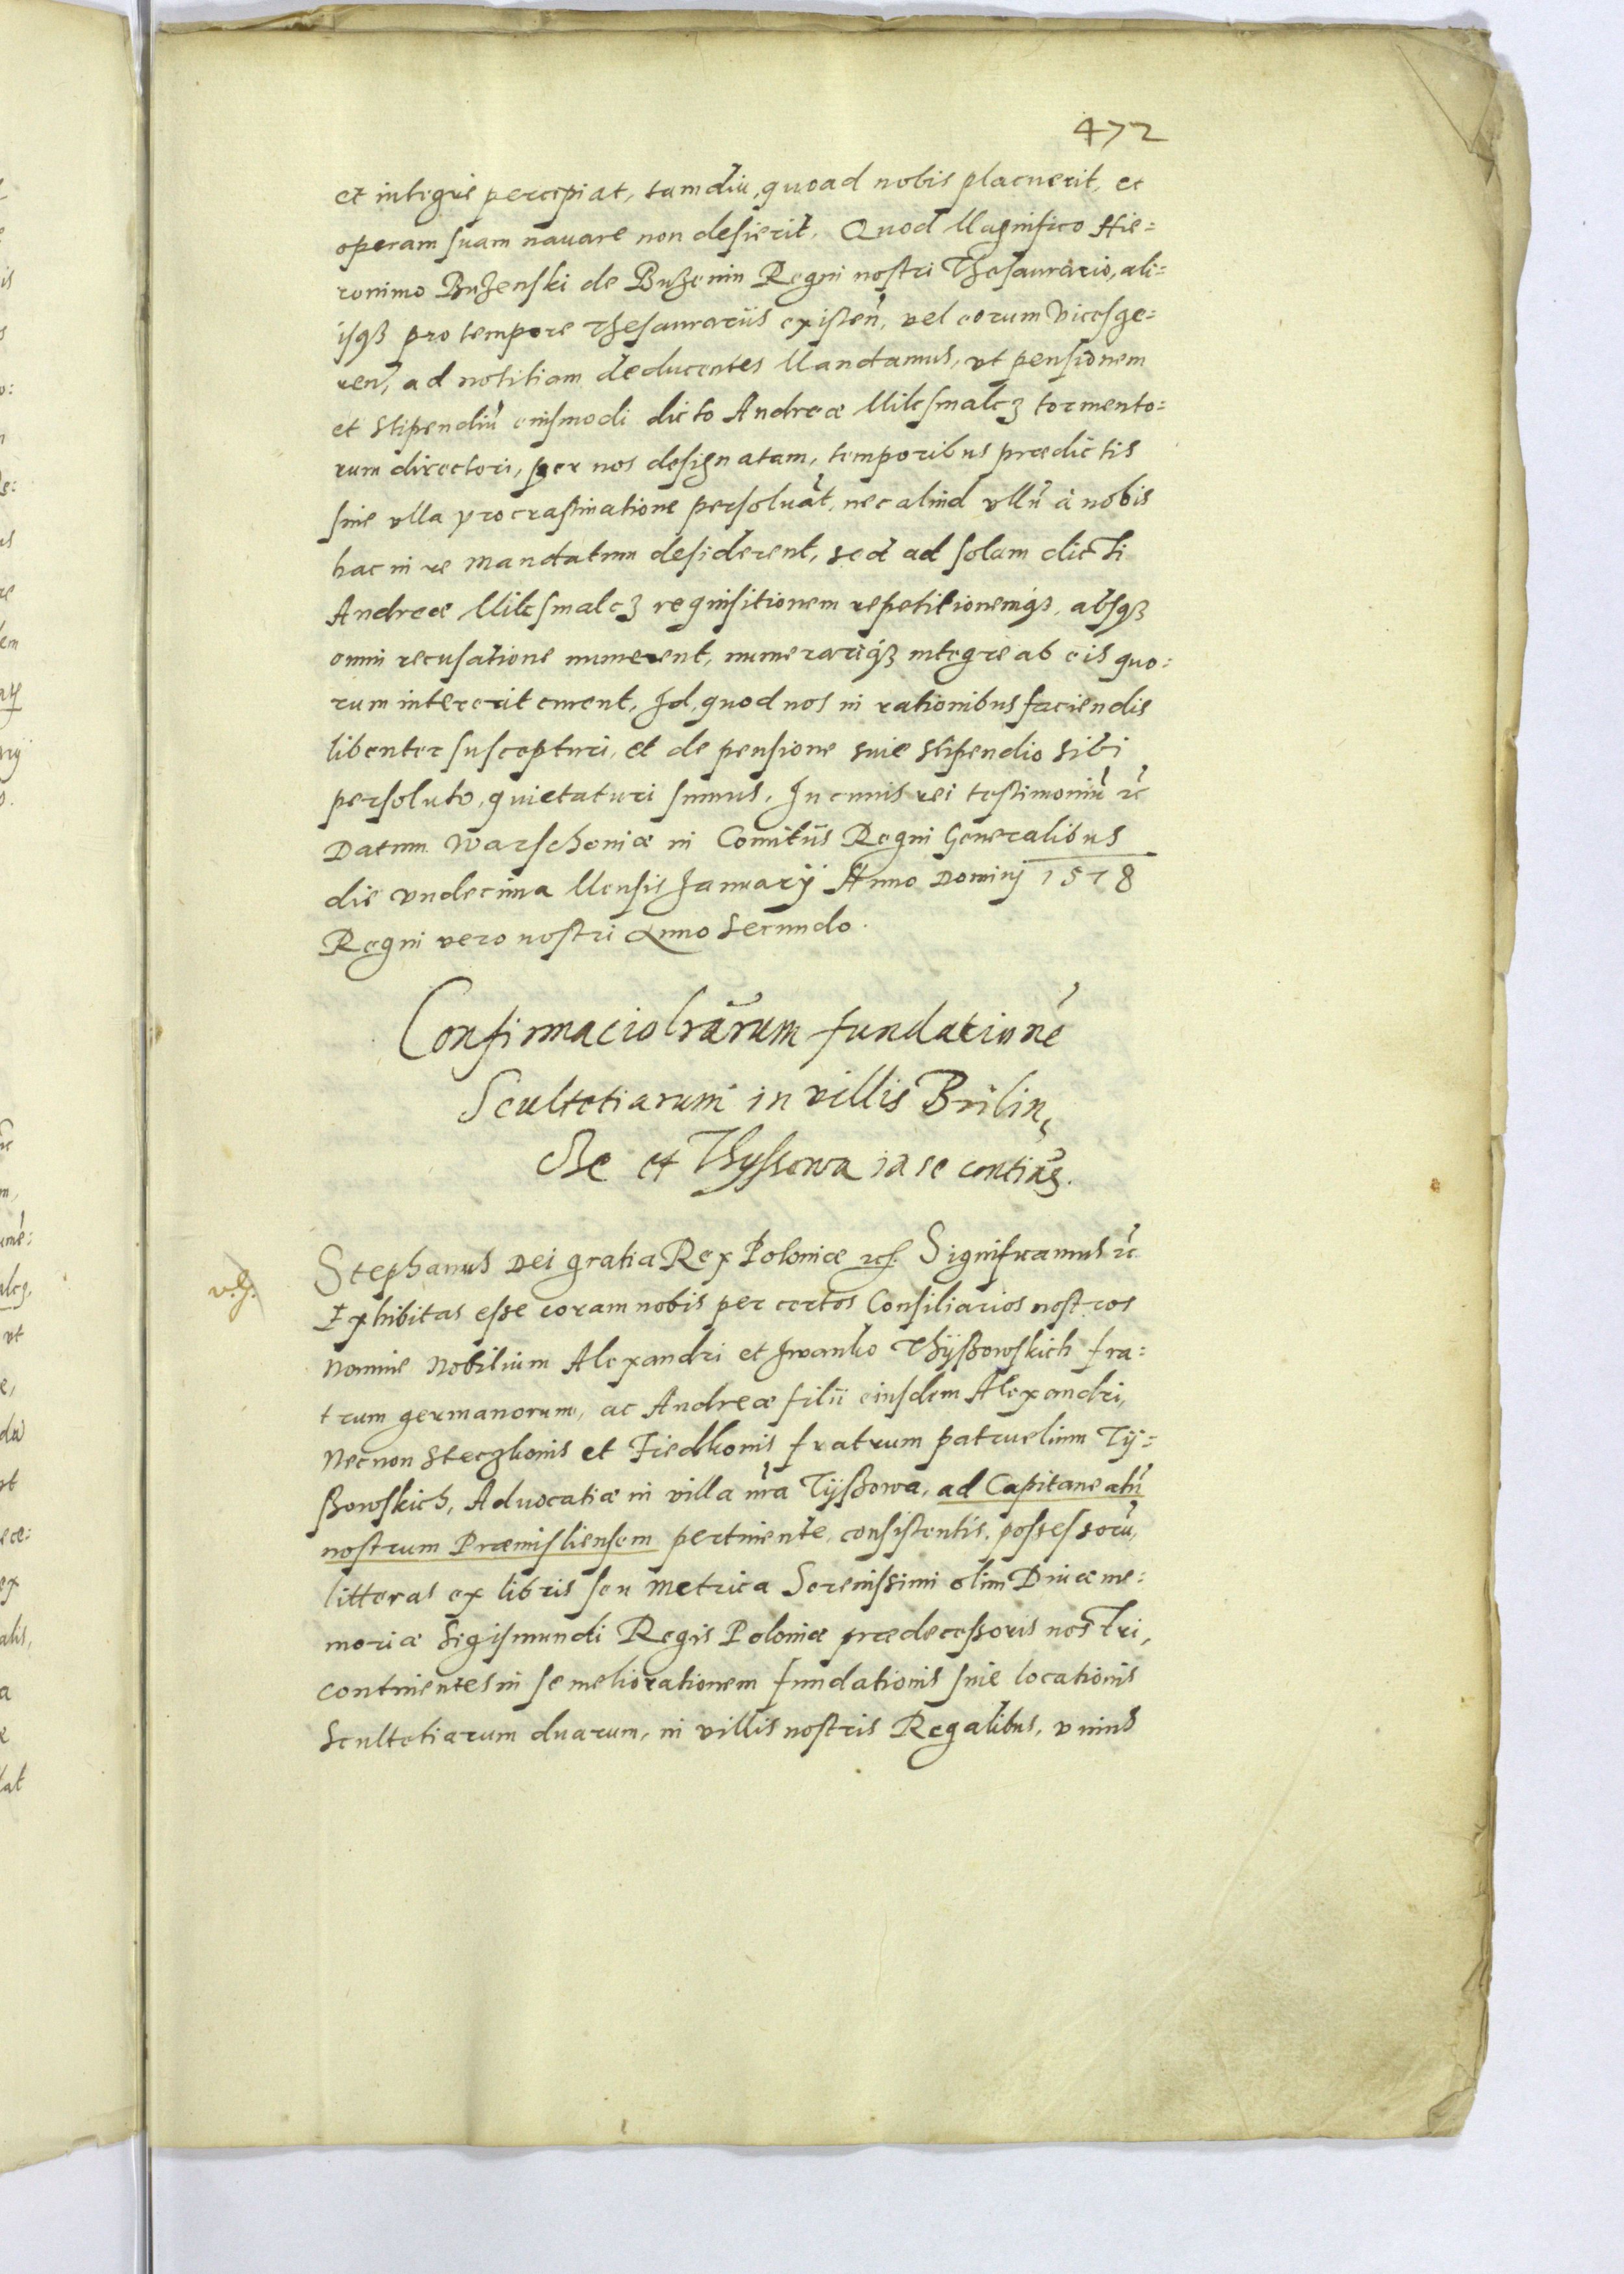 472
et integre percipiat, tamdiu, quoad nobis placuerit, et
operam suam nauare non desierit. Quod Magnifico Hie=
ronimo Buzenski de Buzenin Regni nostri Thesaurario, ali=
isqȝ pro tempore Thesaurariis existeñ, vel eorum Vicesge=
reñ, ad notitiam deducentes Mandamus, vt pensionem
et stipendiũ eiusmodi dicto Andreæ Milesmalcz tormento=
rum directori, per nos designatam, temporibus prædictis
sine vlla procrastinatione persoluãt, nec aliud vllũ à nobis
hac in re mandatum desiderent, sed ad solam dicti
Andreæ Milesmalcz requisitionem repetitionemqȝ, absqȝ
omni recusatione numerent, numerariqȝ integre ab eis quo=
rum intererit curent, Id, quod nos in rationibus faciendis
libenter suscepturi, et de pensione siue stipendio sibi
persoluto, quietaturi sumus. In cuius rei testimoniũ ꝛc̃
Datum Warschouiæ in Comitiis Regni Generalibus
die vndecima Mensis Januarij Anno Dominj 1578
Regni vero nostri Anno Secundo.
Confirmacio lrãrum fundationẽ
Scultetiarum in villis Brilin,
cze et Thyssowa in se contineñ.
v.g.
Stephanus Dei gratia Rex Poloniæ ꝛc. Significamus ꝛc̃
Exhibitas esse coram nobis per certos Consiliarios nostros
Nomine Nobilium Alexandri et Iwanko Thyßowskich fra=
trum germanorum, ac Andreæ filii eiusdem Alexandri,
Necnon Steczkonis et Fiedkonis fratrum patruelium Ty=
ßowskich, Aduocatiæ in villa nr̃a Tyßowa, ad Capitaneatũ
nostrum Præmisliensem pertinente, consistentis, possessorũ,
litteras ex libris seu Metrica Serenissimi olim Diuæ me=
moriæ Sigismundi Regis Poloniæ prædecessoris nostri,
continentes in se meliorationem fundationis siue locationis
Scultetiarum duarum, in villis nostris Regalibus, vnius